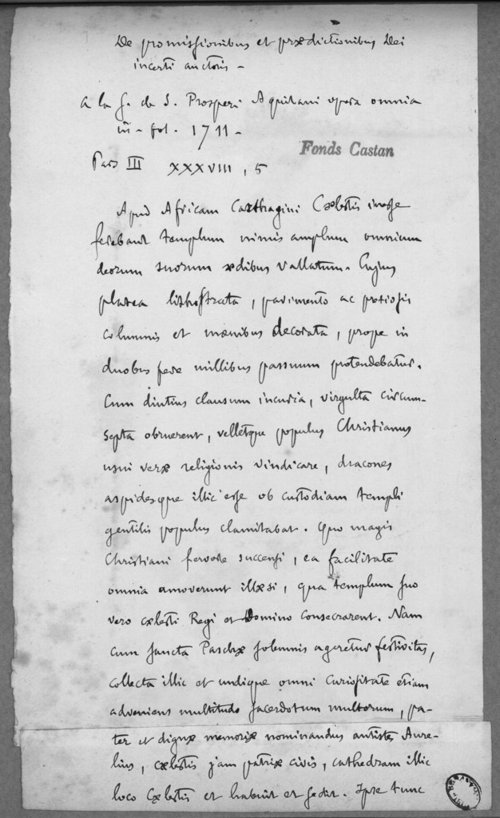 De promissionibus et prædictionibus Dei
incerti auctoris -
A la f. de S. Prosperi Aquitani opera omnia
in - fol. 1711 -
Fonds Castan
Pars III XXXVIII, 5
Apud Africam Carthagini Cælestis inesse
ferebant templum nimis amplum omnium
deorum suorum ædibus vallatum. Cujus
platea lithostrata, pavimento ac pretiosis
columnis et mœnibus decorata, prope in
duobus fere millibus passuum protendebatur.
Cum diutius clausum incuria, virgulta circum-
septa obruerent, velletque populus Christianus
usui veræ religionis vindicare, dracones
aspidesque illic esse ob custodiam templi
gentilis populus clamitabat. Quo magis
Christiani fervore succensi, ea facilitate
omnia amoverunt illæsi, qua templum suo
vero cælesti Regi et Domino consecrarent. Nam
cum sancta Paschæ solemnis ageretur festivitas,
collecta illic et undique omni curiositate etiam
adveniens multitudo sacerdotum multorum, pa-
ter et dignæ memoriæ nominandus antistes Aure-
lius, cælestis jam patriæ civis, cathedram illic
loco Cælestis et habuit et sedit. Ipse tunc